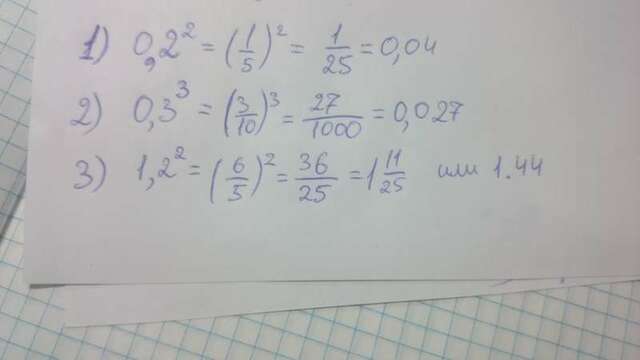 1) 0,2² = (1/5)² = 1/25 = 0,04
2) 0,3³ = (3/10)³ = 27/1000 = 0,027
3) 1,2² = (6/5)² = 36/25 = 1 11/25 или 1.44